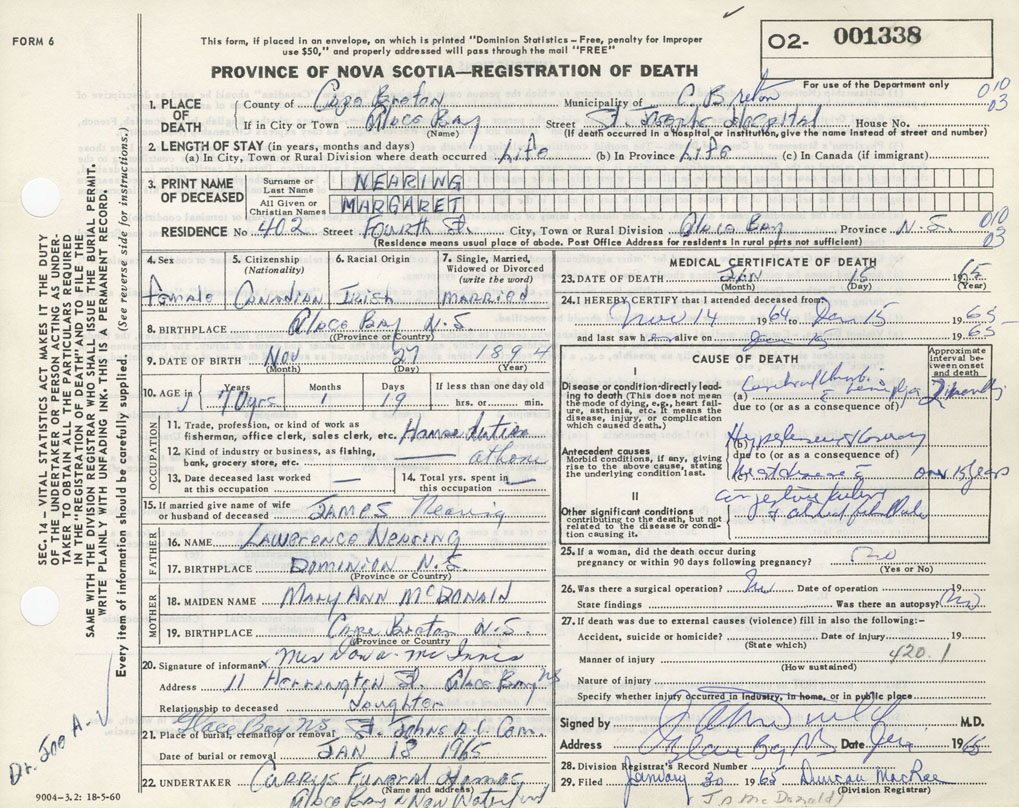 FORM 6
This form, if placed in an envelope, on which is printed "Dominion Statistics – Free, penalty for improper
use $50," and properly addressed will pass through the mail "FREE"
O2- 001338
For use of the Department only
PROVINCE OF NOVA SCOTIA—REGISTRATION OF DEATH
010
03
1. PLACE OF DEATH
County of Cape Breton Municipality of C. Breton
If in City or Town Glace Bay (Name) Street St. Josephs Hospital House No.
(If death occurred in a hospital or institution, give the name instead of street and number)
2. LENGTH OF STAY (in years, months and days)
(a) In City, Town or Rural Division where death occurred Life (b) In Province Life (c) In Canada (if immigrant)
3. PRINT NAME OF DECEASED
Surname or Last Name NEARING
All Given or Christian Names MARGARET
RESIDENCE No. 402 Street Fourth St. City, Town or Rural Division Glace Bay Province N.S. 010 03
(Residence means usual place of abode. Post Office Address for residents in rural parts not sufficient)
4. Sex Female
5. Citizenship (Nationality) Canadian
6. Racial Origin Irish
7. Single, Married, Widowed or Divorced (write the word) MARRIED
8. BIRTHPLACE Glace Bay N.S.
(Province or Country)
9. DATE OF BIRTH Nov 27 1894
(Month) (Day) (Year)
10. AGE in Years 70 yrs Months 1 Days 19 If less than one day old hrs. or min.
OCCUPATION
11. Trade, profession, or kind of work as fisherman, office clerk, sales clerk, etc. Home duties
12. Kind of industry or business, as fishing, bank, grocery store, etc. — at home
13. Date deceased last worked at this occupation —
14. Total yrs. spent in this occupation —
15. If married give name of wife or husband of deceased JAMES Nearing
FATHER
16. NAME LAWRENCE NEARING
17. BIRTHPLACE DOMINION N.S.
(Province or Country)
MOTHER
18. MAIDEN NAME MARY ANN McDONALD
19. BIRTHPLACE Cape Breton N.S.
(Province or Country)
20. Signature of informant x Mrs McInnis
Address 11 St. Glace Bay NS
Relationship to deceased Daughter
21. Place of burial, cremation or removal Glace Bay NS St. Johns R.C. Cem.
Date of burial or removal JAN 18 1965
22. UNDERTAKER CURRYS FUNERAL HOMES
(Name and address)
Glace Bay & New Waterford
9004-3.2: 18-5-60
MEDICAL CERTIFICATE OF DEATH
23. DATE OF DEATH JAN 15 1965
(Month) (Day) (Year)
24. I HEREBY CERTIFY that I attended deceased from
Nov 14 1964 to Jan 15 1965
and last saw h alive on 1965
CAUSE OF DEATH
Approximate interval between onset and death
I
Disease or condition directly leading to death (This does not mean the mode of dying, e.g., heart failure, asthenia, etc. It means the disease, injury, or complication which caused death.)
(a) Cerebral 2 months
due to (or as a consequence of)
Antecedent causes
Morbid conditions, if any, giving rise to the above cause, stating the underlying condition last.
(b)
due to (or as a consequence of)
(c) over 15 years
II
Other significant conditions contributing to the death, but not related to the disease or condition causing it.
25. If a woman, did the death occur during
pregnancy or within 90 days following pregnancy? no
(Yes or No)
26. Was there a surgical operation? no Date of operation 19
State findings Was there an autopsy? no
27. If death was due to external causes (violence) fill in also the following:–
Accident, suicide or homicide? Date of injury 19
(State which)
Manner of injury 420.1
(How sustained)
Nature of injury
Specify whether injury occurred in industry, in home, or in public place
Signed by M.D.
Address Glace Bay NS Date 1965
28. Division Registrar's Record Number
29. Filed January 30 1965 Duncan MacRae
(Division Registrar)
SEC. 14 – VITAL STATISTICS ACT MAKES IT THE DUTY
OF THE UNDERTAKER OR PERSON ACTING AS UNDER-
TAKER TO OBTAIN ALL THE PARTICULARS REQUIRED
IN THE "REGISTRATION OF DEATH" AND TO FILE THE
SAME WITH THE DIVISION REGISTRAR WHO SHALL ISSUE THE BURIAL PERMIT.
WRITE PLAINLY WITH UNFADING INK. THIS IS A PERMANENT RECORD.
Every item of information should be carefully supplied. (See reverse side for instructions.)
Dr. Joe A-